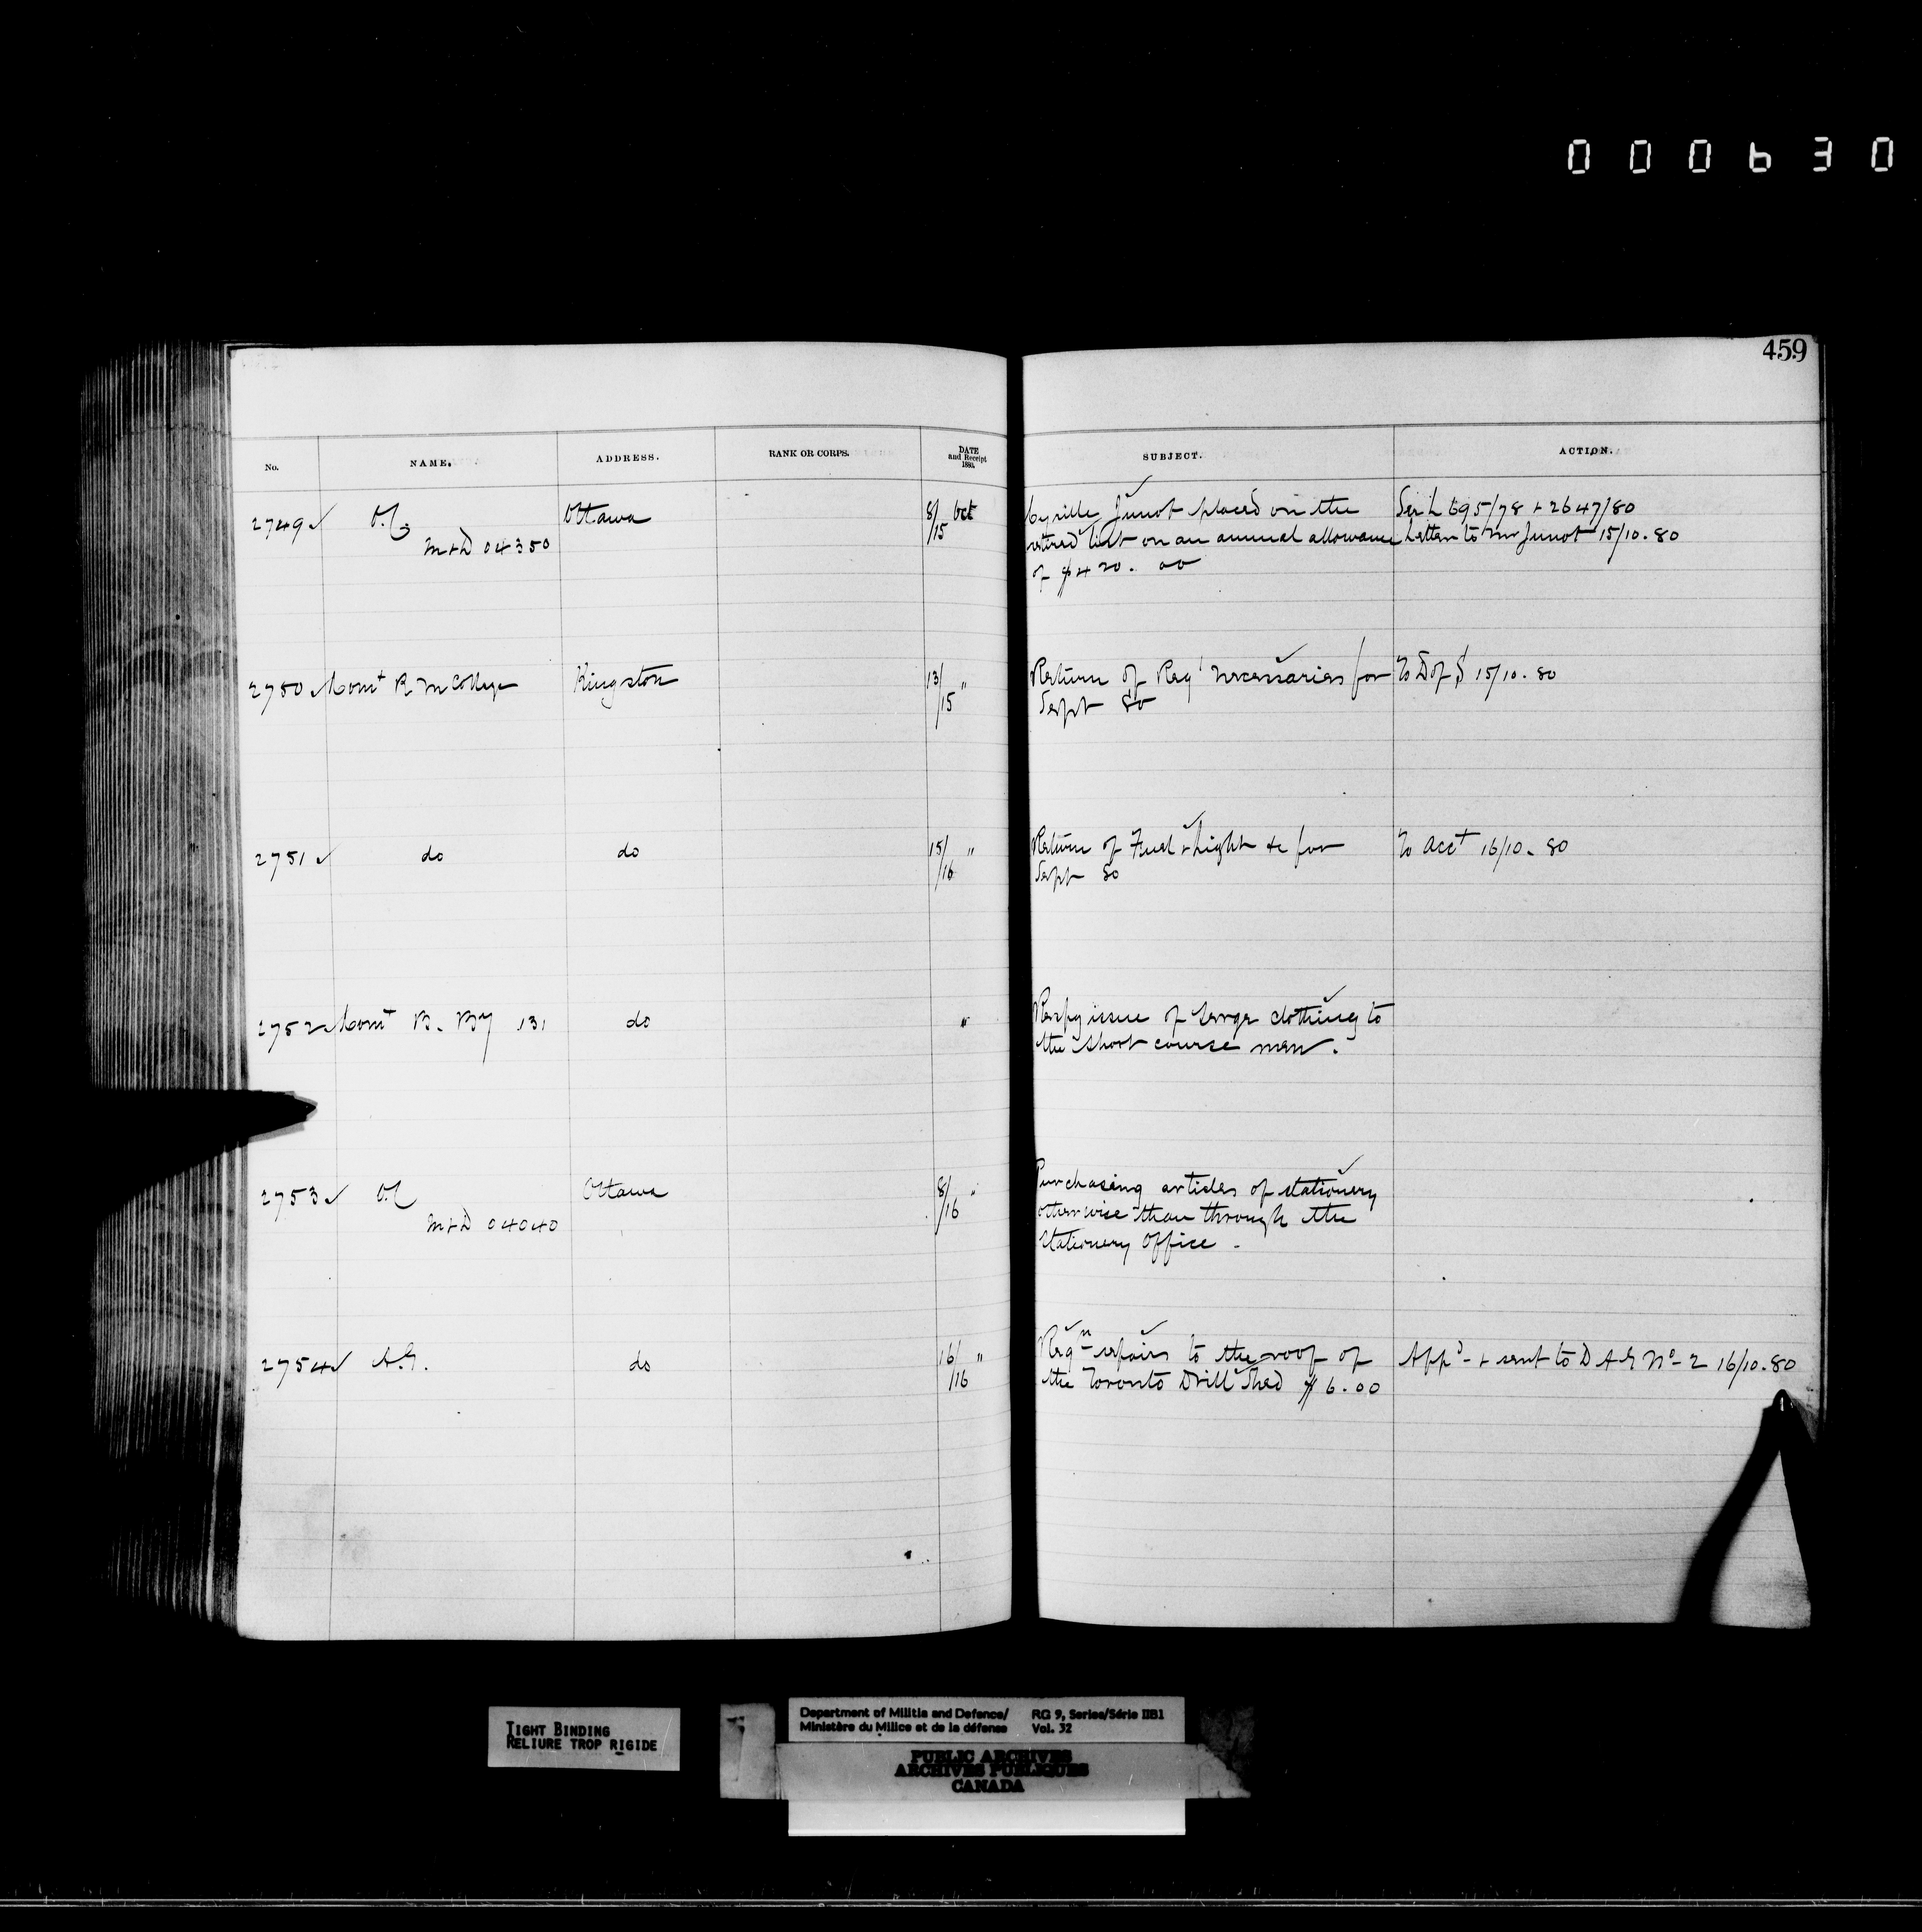 000630
459
No. NAME. ADDRESS. RANK OR CORPS. DATE and Receipt 1880. SUBJECT. ACTION.
2749 O.C. Ottawa 8/15 Oct Cyrille Junot placed on the See L 695/78 + 2647/80
M+D 04350 retired list on an annual allowance Letter to Mr Junot 15/10.80
of $420.00
2750 Comt R M College Kingston 13/15 " Return of Reg necessaries for To D of S 15/10.80
Sept 80
2751 do do 15/16 " Return of Fuel + Light &c for To Acct 16/10.80
Sept 80
2752 Comt B. By 131 do " Respg issue of serge clothing to
the short course men.
2753 O.C. Ottawa 8/16 " Purchasing articles of stationery
M+D 04040 otherwise than through the
Stationery Office -
2754 A.G. do 16/16 " Reqn repairs to the roof of Appd - + sent to D A G No- 2 16/10.80
the Toronto Drill Shed $6.00
TIGHT BINDING
RELIURE TROP RIGIDE
Department of Militia and Defence/ RG 9, Series/Série IIB1
Ministère du Milice et de la défense Vol. 32
PUBLIC ARCHIVES
ARCHIVES PUBLIQUES
CANADA